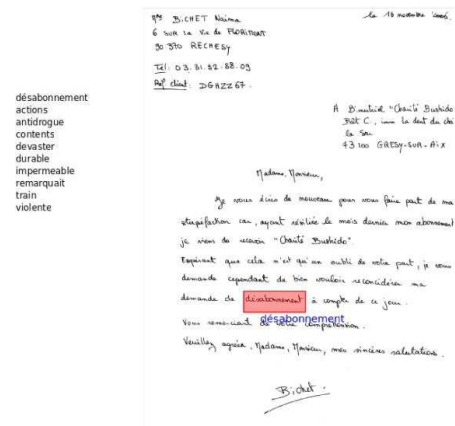 désabonnement
actions
antidrogue
contents
devaster
durable
impermeable
remarquait
train
violente
Mme BICHET Naima
6 sur la Vie de FLORIMONT
90 370 RECHESY
Tél: 03.81.32.88.09
Réf client: DGHZZ67.
le 18 novembre 2006.
A Bust
Bât C,
73100 GRESY-SUR-AIX
Madame, Monsieur,
Je vous écris de nouveau pour vous faire part de ma
stupéfaction car, ayant résilié le mois dernier mon abonnement
je viens de recevoir "Chaité Bushido".
Espérant que cela n'est qu'un oubli de votre part, je vous
demande cependant de bien vouloir reconsidérer ma
demande de désabonnement à compter de ce jour.
désabonnement
Vous remerciant de votre compréhension.
Veuillez agréer, Madame, Monsieur, mes sincères salutations.
Bichet.